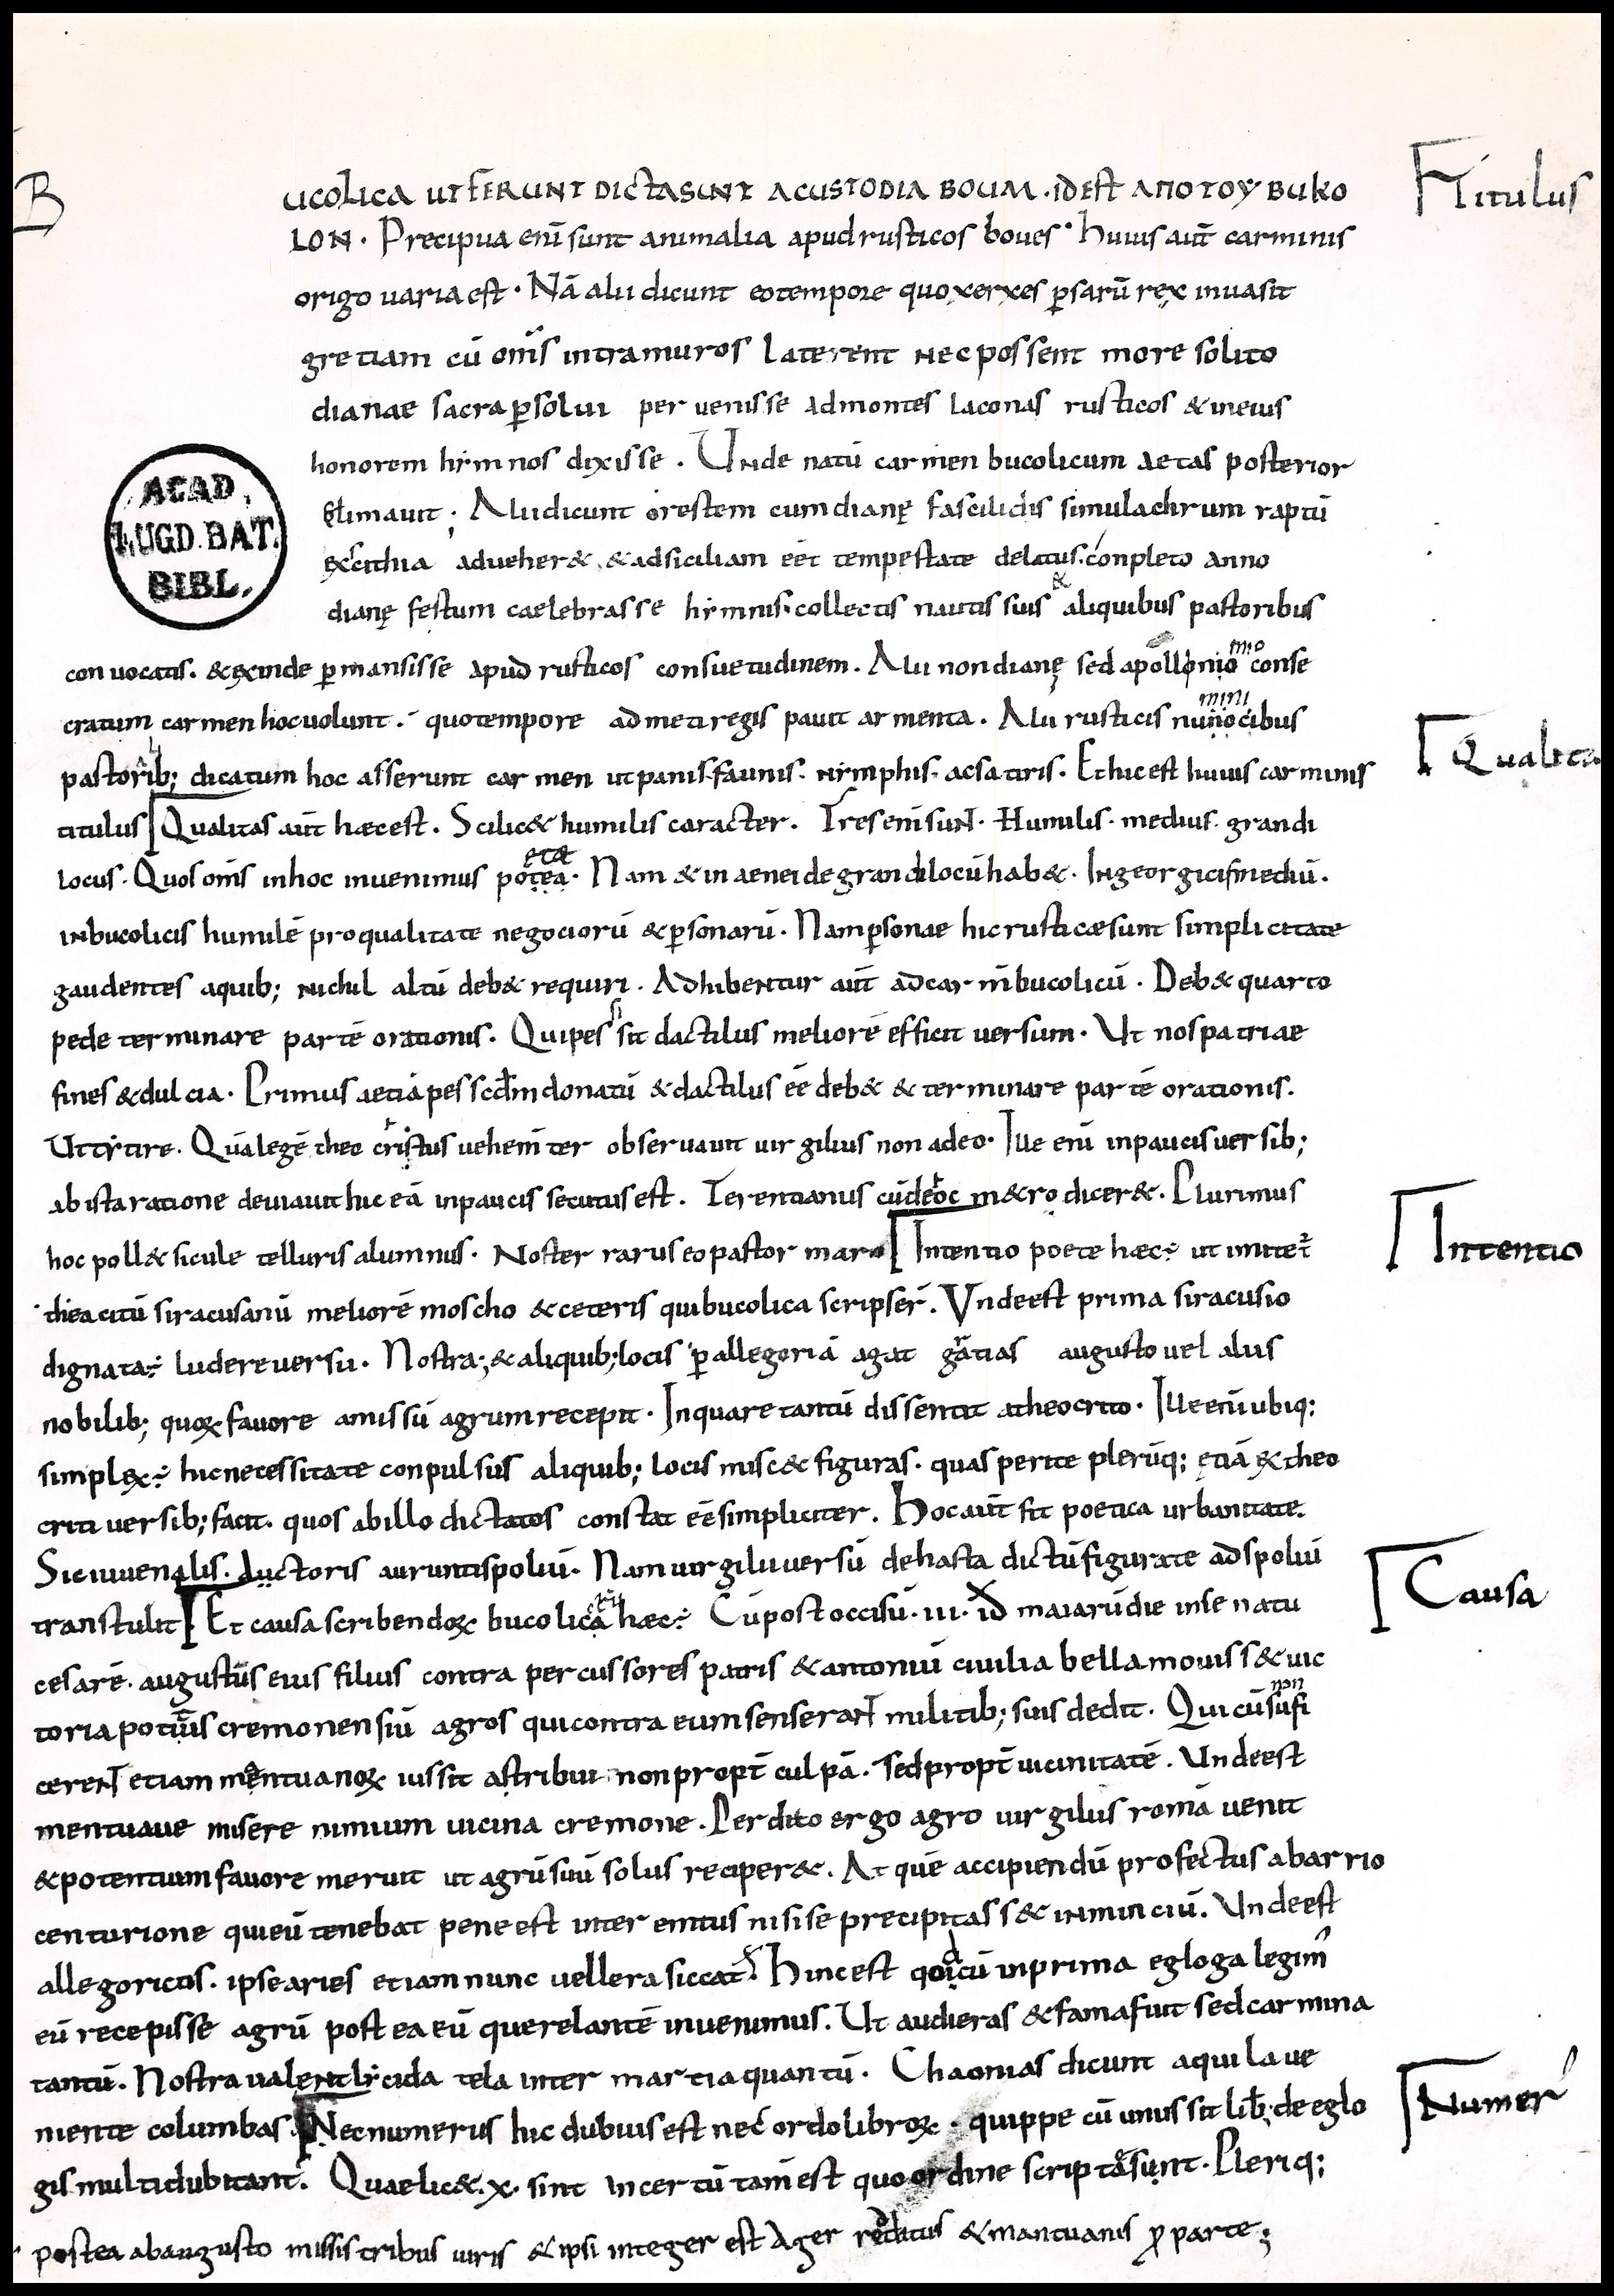 B
UCOLICA UT FERUNT DICTA SUNT A CUSTODIA BOUM · id est ΑΠΟ ΤΟΥ BUKO
Titulus
LON · Precipua enī sunt animalia apud rusticos boues · huius aut̄ carminis
origo uaria est · Nā alii dicunt eo tempore quo xerxes ꝑsarū rex inuasit
gretiam cū om̄s intra muros laterent nec possent more solito
dianae sacra ꝑsolui per uenisse ad montes laconas rusticos & in eius
honorem hẏmnos dixisse . Unde natū carmen bucolicum aetas posterior
elimauit · Alii dicunt orestem cum dianę fascilidis simulachrum raptū
ACAD.
LUGD.BAT.
BIBL.
ex scithia adueher& & ad siciliam eēt tempestate delatus. conpleto anno
dianę festum caelebrasse hẏmnis · collectis nautis suis & aliquibus pastoribus
conuocatis. & exinde ꝑmansisse apud rusticos consuetudinem . Alii non dianę sed apollonio mio conse
cratum carmen hoc uolunt . quo tempore admeti regis pauit armenta . Alii rusticis nunocibus mini
pastorib; dicatum hoc asserunt carmen ut panis · faunis · nẏmphis · ac satiris . Et hic est huius carminis
Qualita
titulus Qualitas aut̄ hæc est . Scilic& humilis caracter . Tres enī sunt · Humilis · medius · grandi
locus · Quos om̄s in hoc inuenimus potea etæ · Nam & in aeneide grandilocū hab& . In georgicis mediū .
in bucolicis humilē pro qualitate negociorū & ꝑsonarū . Nam ꝑsonae hic rusticæ sunt simplicitate
gaudentes a quib; nichil altū deb& requiri . Adhibentur aut̄ ad carm̄ bucolicū . Deb& quarto
pede terminare partē orationis . Qui pes si sit dactilus meliorē efficit uersum · Ut nos patriae
fines & dulcia · Primus aetiā pes scdm donatū & dactilus eē deb& & terminare partē orationis .
Ut tẏtire · Quā legē theo cristus uehem̄ter obseruauit uirgilius non adeo · Ille enī in paucis uersib;
ab ista ratione deuiauit hic eā in paucis secutus est . Terentianus cū de hoc m&ro dicer& . Plurimus
hoc poll& sicule telluris alumnus · Noster rarus eo pastor maro Intentio poete hæc ÷ ut imitet̄
Intentio
theacitū siracusanū meliorē moscho & ceteris qui bucolica scripser̄ . Unde est prima siracusio
dignata ÷ ludere uersu . Nostra ; & aliquib; locis ꝑ allegoriā agat gratias augusto uel aliis
nobilib; quoꝝ fauore amissū agrum recepit . In qua re tantū dissentit a theocrito · Ille enī ubiq;
simplex ÷ hic necessitate conpulsus aliquib; locis misc& figuras . quas perite plerūq; etiā ex theo
criti uersib; facit . quos ab illo dictatos constat eē simpliciter . Hoc aut̄ fit poetica urbanitate.
Sic iuuenalis . Auctoris auruntispoliū . Nam uirgilii uersū de hasta dictū figurate ad spoliū
Causa
transtulit Et causa scribendoꝝ bucolica hæc ÷ Cū post occisū · III · id maiarū die in senatu
cesarē . augustus eius filius contra percussores patris & antoniū ciuilia bella mouiss& uic
toria potitus cremonensiū agros qui contra eum senserant militib; suis dedit . Qui cū non sufi
cerent etiam mantuanoꝝ iussit astribui non propt̄ culpā . Sed propt̄ uicinitatē . Unde est
mentuaue misere nimium uicina cremone . Perdito ergo agro uirgilius romā uenit
& potentium fauore meruit ut agrū suū solus reciper& . At quē accipiendū profectus ab arrio
centurione qui eū tenebat pene est interemtus nisi se precipitass& in minciū . Unde est
allegoricos · ipse aries etiam nunc uellera siccat . Hinc est qd cū in prima egloga legim̄
eū recepisse agrū post ea eū querelantē inuenimus . Ut audieras & fama fuit sed carmina
tantū . Nostra ualent lẏcida tela inter martia quantū . Chaonias dicunt aquila ue
Numer
niente columbas Nec numerus hic dubius est nec ordo libroꝝ · quippe cū unus sit lib; de eglo
gis multi dubitant . Quae lic& . X · sint incertū tam̄ est quo ordine scripta sunt . Pleriq;
postea ab augusto missis tribus uiris & ipsi integer est Ager redditus & mantuanis ꝓ parte ;